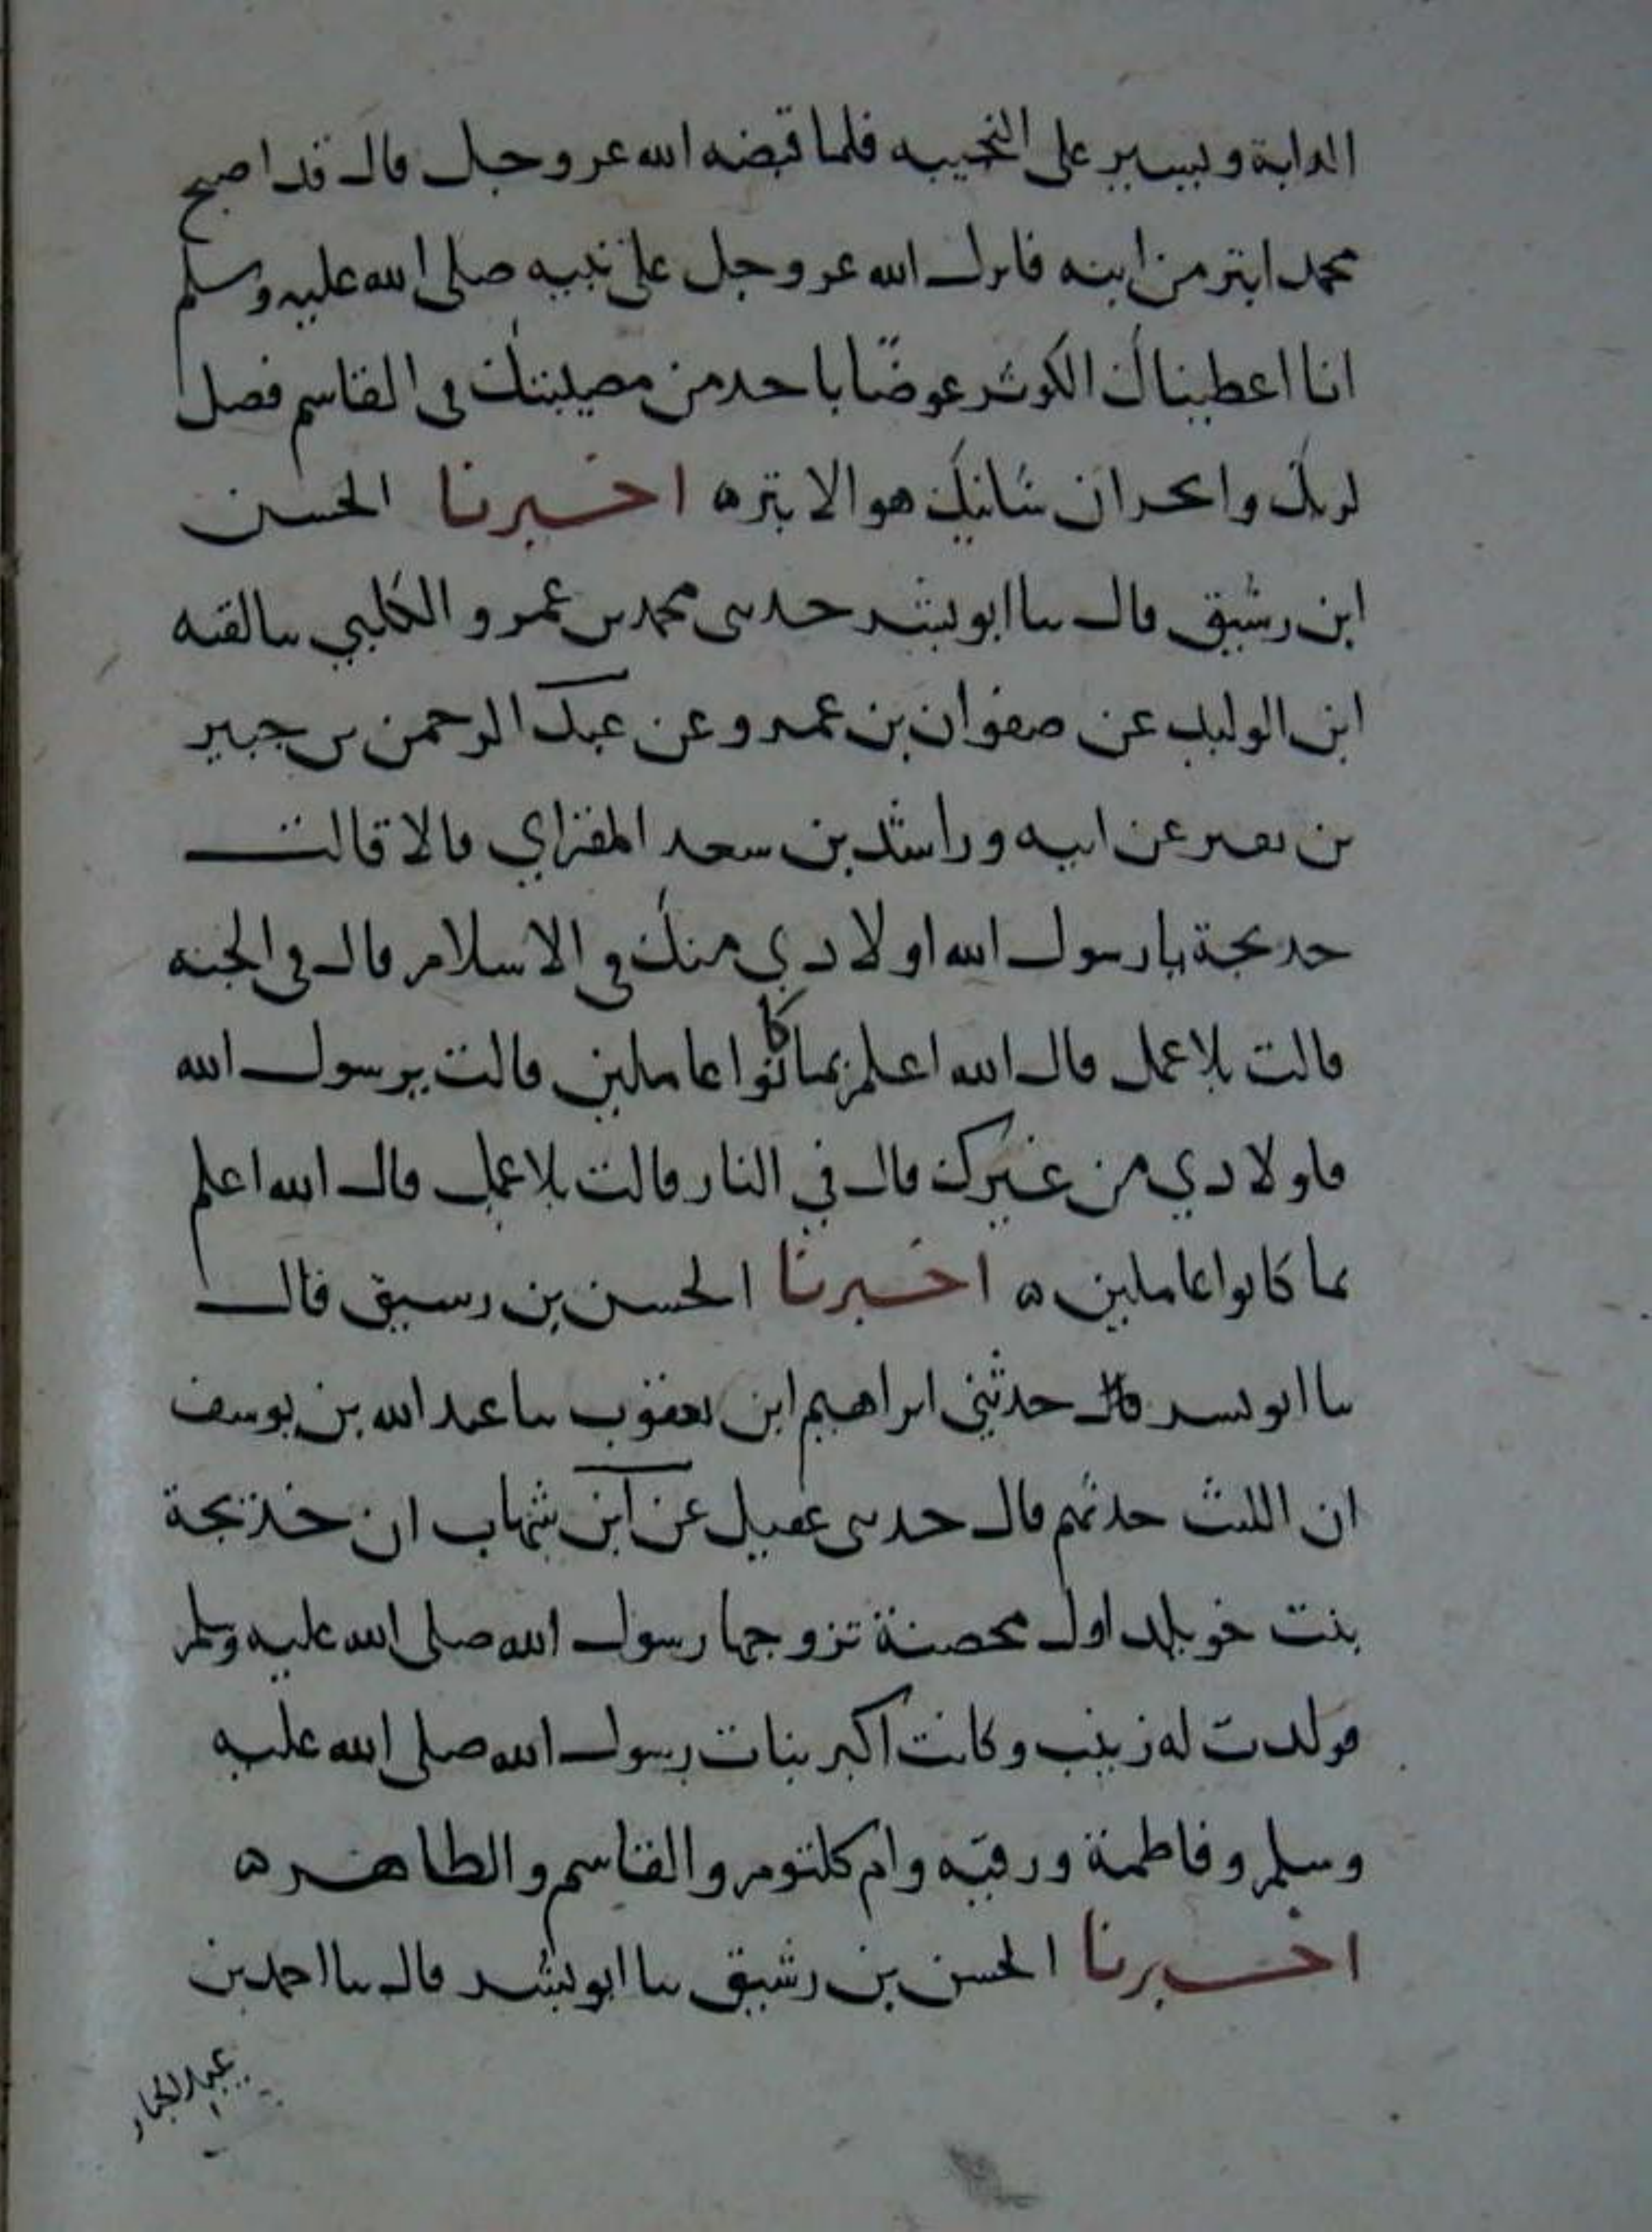 الدابة ويسير على النجيبه فلما قبضه الله عز وجل قال قد اصبح
محمد ابتر من ابنه فانزل الله عز وجل على نبيه صلى الله عليه وسلم
انا اعطيناك الكوثر عوضا يا احمد من مصيبتك في القاسم فصل
لربك وانحر ان شانيك هو الابتر ه اخبرنا الحسن
ابن رشيق قال سا ابو بشر حدثني محمد بن عمرو الكلبي سا لقيه
ابن الوليد عن صفوان بن عمرو عن عبد الرحمن بن جبير
بن نفير عن ابيه وراشد بن سعد المقراي قالا قالت
خديجة يا رسول الله اولادي منك في الاسلام قال في الجنه
قالت بلا عمل قال الله اعلم بما كانوا عاملين قالت يرسول الله
فاولادي من غيرك قال في النار قالت بلا عمل قال الله اعلم
بما كانوا عاملين ه اخبرنا الحسن بن رسيق قال
سا ابو بسر قال حدثني ابراهيم ابن يعقوب سا عبد الله بن يوسف
ان الليث حدثهم قال حدثني عقيل عن ابن شهاب ان خديجة
بنت خويلد اول محصنة تزوجها رسول الله صلى الله عليه وسلم
فولدت له زينب وكانت اكبر بنات رسول الله صلى الله عليه
وسلم وفاطمة ورقيه وام كلثوم والقاسم والطاهر ه
اخبرنا الحسن بن رشيق سا ابو بشر قال سا احمد بن
عبد الجبار